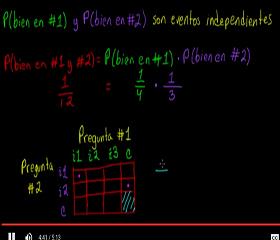 P(bien en #1) y P(bien en #2) son eventos independientes
P(bien en #1 y #2) = P(bien en #1) · P(bien en #2)
1/12 = 1/4 · 1/3
Pregunta #1
i1 i2 i3 c
Pregunta #2
i1
i2
c
4:41 / 5:13